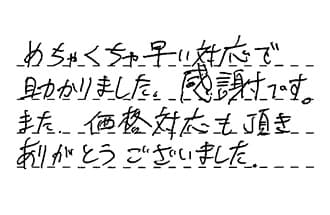 めちゃくちゃ早い対応で
助かりました。感謝です。
また、価格対応も頂き
ありがとうございました。